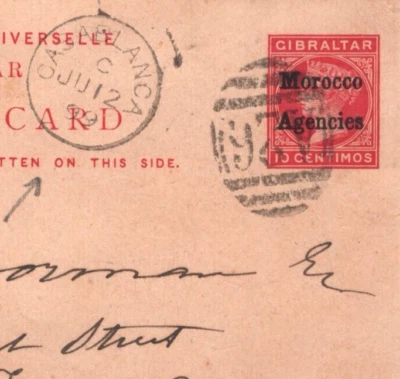 IVERSELLE
AR
CARD
TTEN ON THIS SIDE.
CASABLANCA
C
JU 12
99
GIBRALTAR
Morocco
Agencies
10 CENTIMOS
orman Er
Street